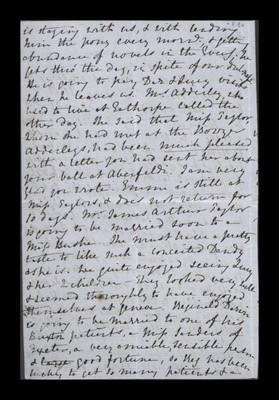 is staying with us, & with lending
him the pony every morng & getting
abundance of novels in the Envf. he
gets thro' the day, in spite of our dulness
He is going to pay Dar & Lucy visits
when he leaves us. Mr. Adderley who
used to live at Eathorpe called the
other day. She said that Miss Taylor
whom she had met at the Bowyer
Adderleys, had been much pleased
with a letter you had sent her about
your ball at Aberfeldi. I am very
glad you wrote. Emma is still at
Miss Taylors, & does not return for
10 days. Mr. James Arthur Taylor
is going to be married soon to a
Miss Bushe. She must have a pretty
taste to like such a conceited Dandy
as he is. We quite enjoyed seeing Lucy
& her 2 children. They looked very well
& seemed thoroughly to have enjoyed
themselves at Geneva. Reginald Darwin
is going to be married to one of his
Buxton patients. a Miss Sanders of
Exeter, a very amiable, sensible person
& large good fortune, so Reg. has been
lucky to get so many patients &